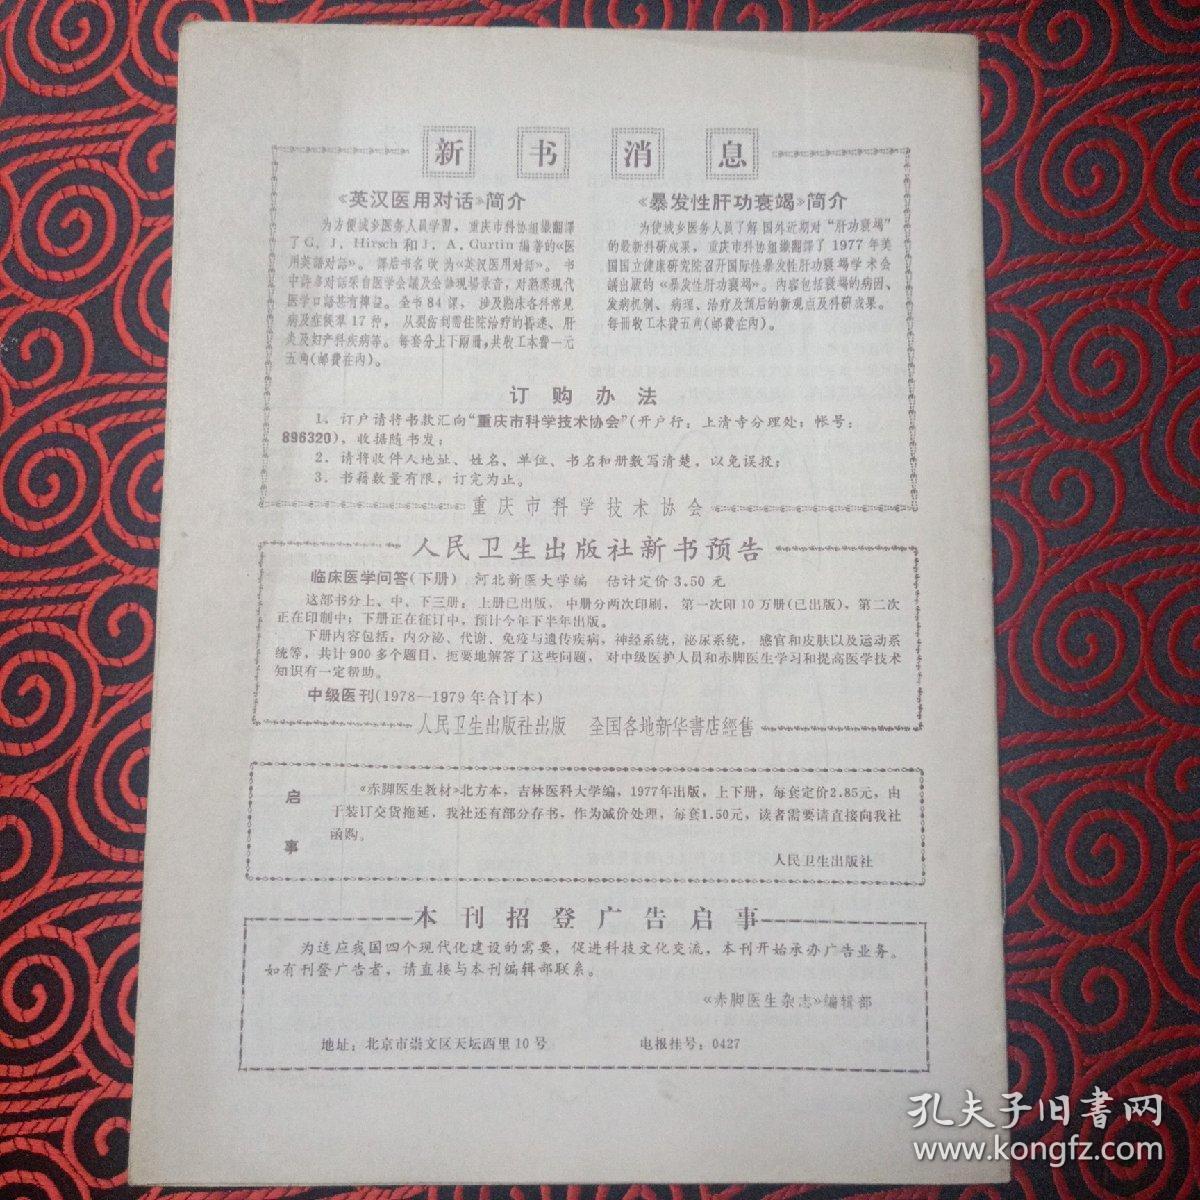 新书消息
《英汉医用对话》简介
为方便城乡医务人员学習，重庆市科协组織翻譯
了G．J．Hirsch和J．A．Gurtin编著的《医
用英語对话》。譯后书名改为《英汉医用对话》。书
中許多对话采自医学会議及会診現場录音，对熟悉現代
医学口語甚有裨益。全书84课，涉及臨床各科常見
病及症候羣17种，从裂伤到需住院治疗的昏迷、肝
炎及妇产科疾病等。每套分上下两册，共收工本费一元
五角(邮费在内)。
《暴发性肝功衰竭》简介
为使城乡医务人員了解国外近期对“肝功衰竭”
的最新科研成果，重庆市科协组織翻譯了1977年美
国国立健康研究院召开国际性暴发性肝功衰竭学术会
議出版的《暴发性肝功衰竭》。内容包括衰竭的病因、
发病机制、病理、治疗及預后的新观点及科研成果。
每冊收工本费五角(邮费在内)。
订购办法
1．订户请将书款汇向“重庆市科学技术协会”(开户行：上清寺分理处；帐号：
896320)，收据随书发；
2．请将收件人地址、姓名、单位、书名和册数写清楚，以免误投；
3．书籍数量有限，订完为止。
重庆市科学技术协会
人民卫生出版社新书预告
临床医学问答(下册) 河北新医大学编 估计定价3.50元
这部书分上、中、下三册：上册已出版，中册分两次印刷，第一次印10万册(已出版)，第二次
正在印制中；下册正在征订中，预计今年下半年出版。
下册内容包括：内分泌、代谢、免疫与遗传疾病，神经系统，泌尿系统，感官和皮肤以及运动系
统等，共计900多个题目，扼要地解答了这些问题，对中级医护人员和赤脚医生学习和提高医学技术
知识有一定帮助。
中级医刊(1978—1979年合订本)
人民卫生出版社出版 全国各地新华書店經售
启事
《赤脚医生教材》北方本，吉林医科大学编，1977年出版，上下册，每套定价2.85元，由
于装订交货拖延，我社还有部分存书，作为减价处理，每套1.50元，读者需要请直接向我社
函购。
人民卫生出版社
本刊招登广告启事
为适应我国四个现代化建设的需要，促进科技文化交流，本刊开始承办广告业务。
如有刊登广告者，请直接与本刊编辑部联系。
《赤脚医生杂志》编辑部
地址：北京市崇文区天坛西里10号 电报挂号：0427
孔夫子旧書网
www.kongfz.com